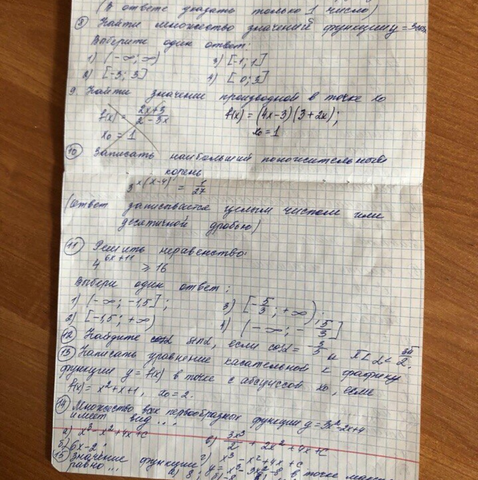 (В ответе указать только 1 число)
⑧ Найти множество значений функции y = 3cosx
Выберите один ответ:
1) (-∞; ∞) 3) [-1; 1]
2) [-3; 3] 4) [0; 3]
9. Найти значение производной в точке x₀
f(x) = (2x+3)/(2-3x) f(x) = (4x-3)(3+2x);
x₀ = 1 x₀ = 1
⑩ Записать наибольший положительный
корень
3^(x(x-4)) = 1/27
(ответ записывается целым числом или
десятичной дробью)
⑪ Решить неравенство
4^(6x+11) ≥ 16
Выбери один ответ:
1) (-∞; -1,5]; 3) [-5/3; +∞)
2) [-1,5; +∞) 4) (-∞; -5/3]
⑫ Найдите sinα, если cosα = -3/5 и π < α < 3π/2
⑬ Написать уравнение касательной к графику
функции y = f(x) в точке с абсциссой x₀, если
f(x) = x² + x + 1, x₀ = 2.
⑭ Множество всех первообразных функции y = 3x² - 2x + 4
имеет вид...
а) x³ - x² + 4x + C в) 3x³/2 + 2x² + 4x + C
б) 6x - 2; г) x³ - x² - 4x + C
⑮ Значение функции y = x³ - 3x² - 8 в точке
равно...